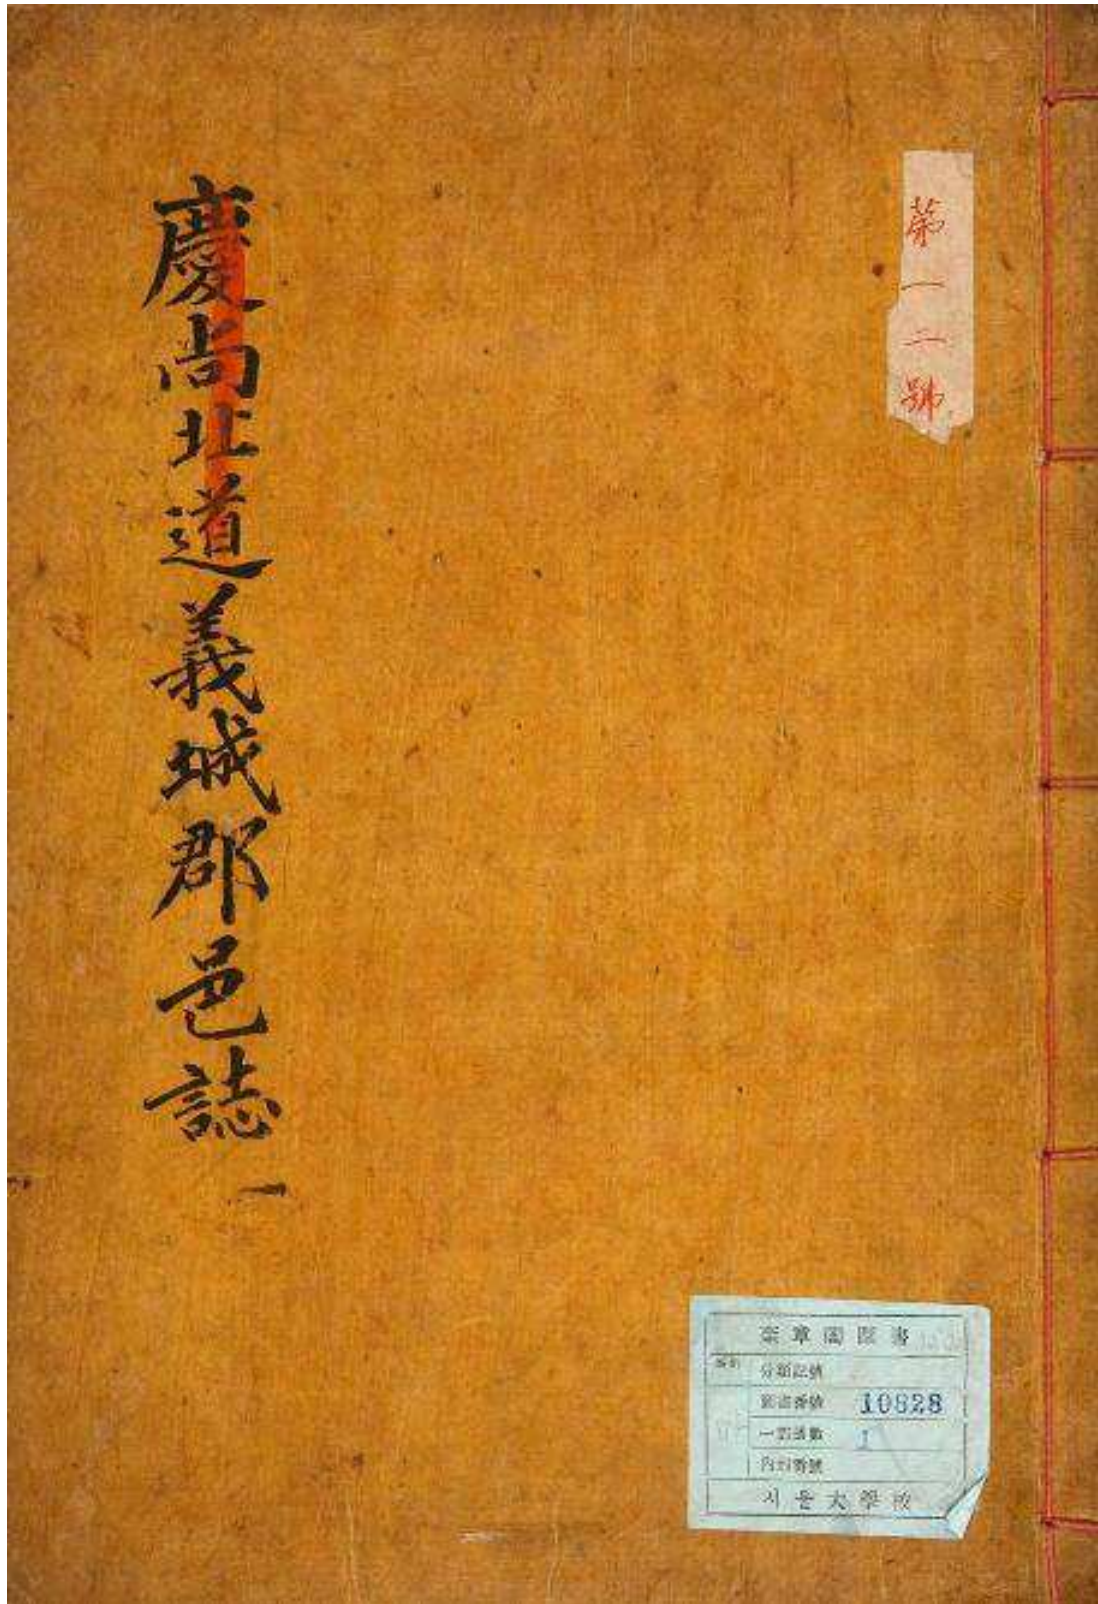 第一二號
慶尙北道義城郡邑誌 一
奎章閣圖書
分類記號
圖書番號 10828
一部冊數 1
內冊番號
서울大學校